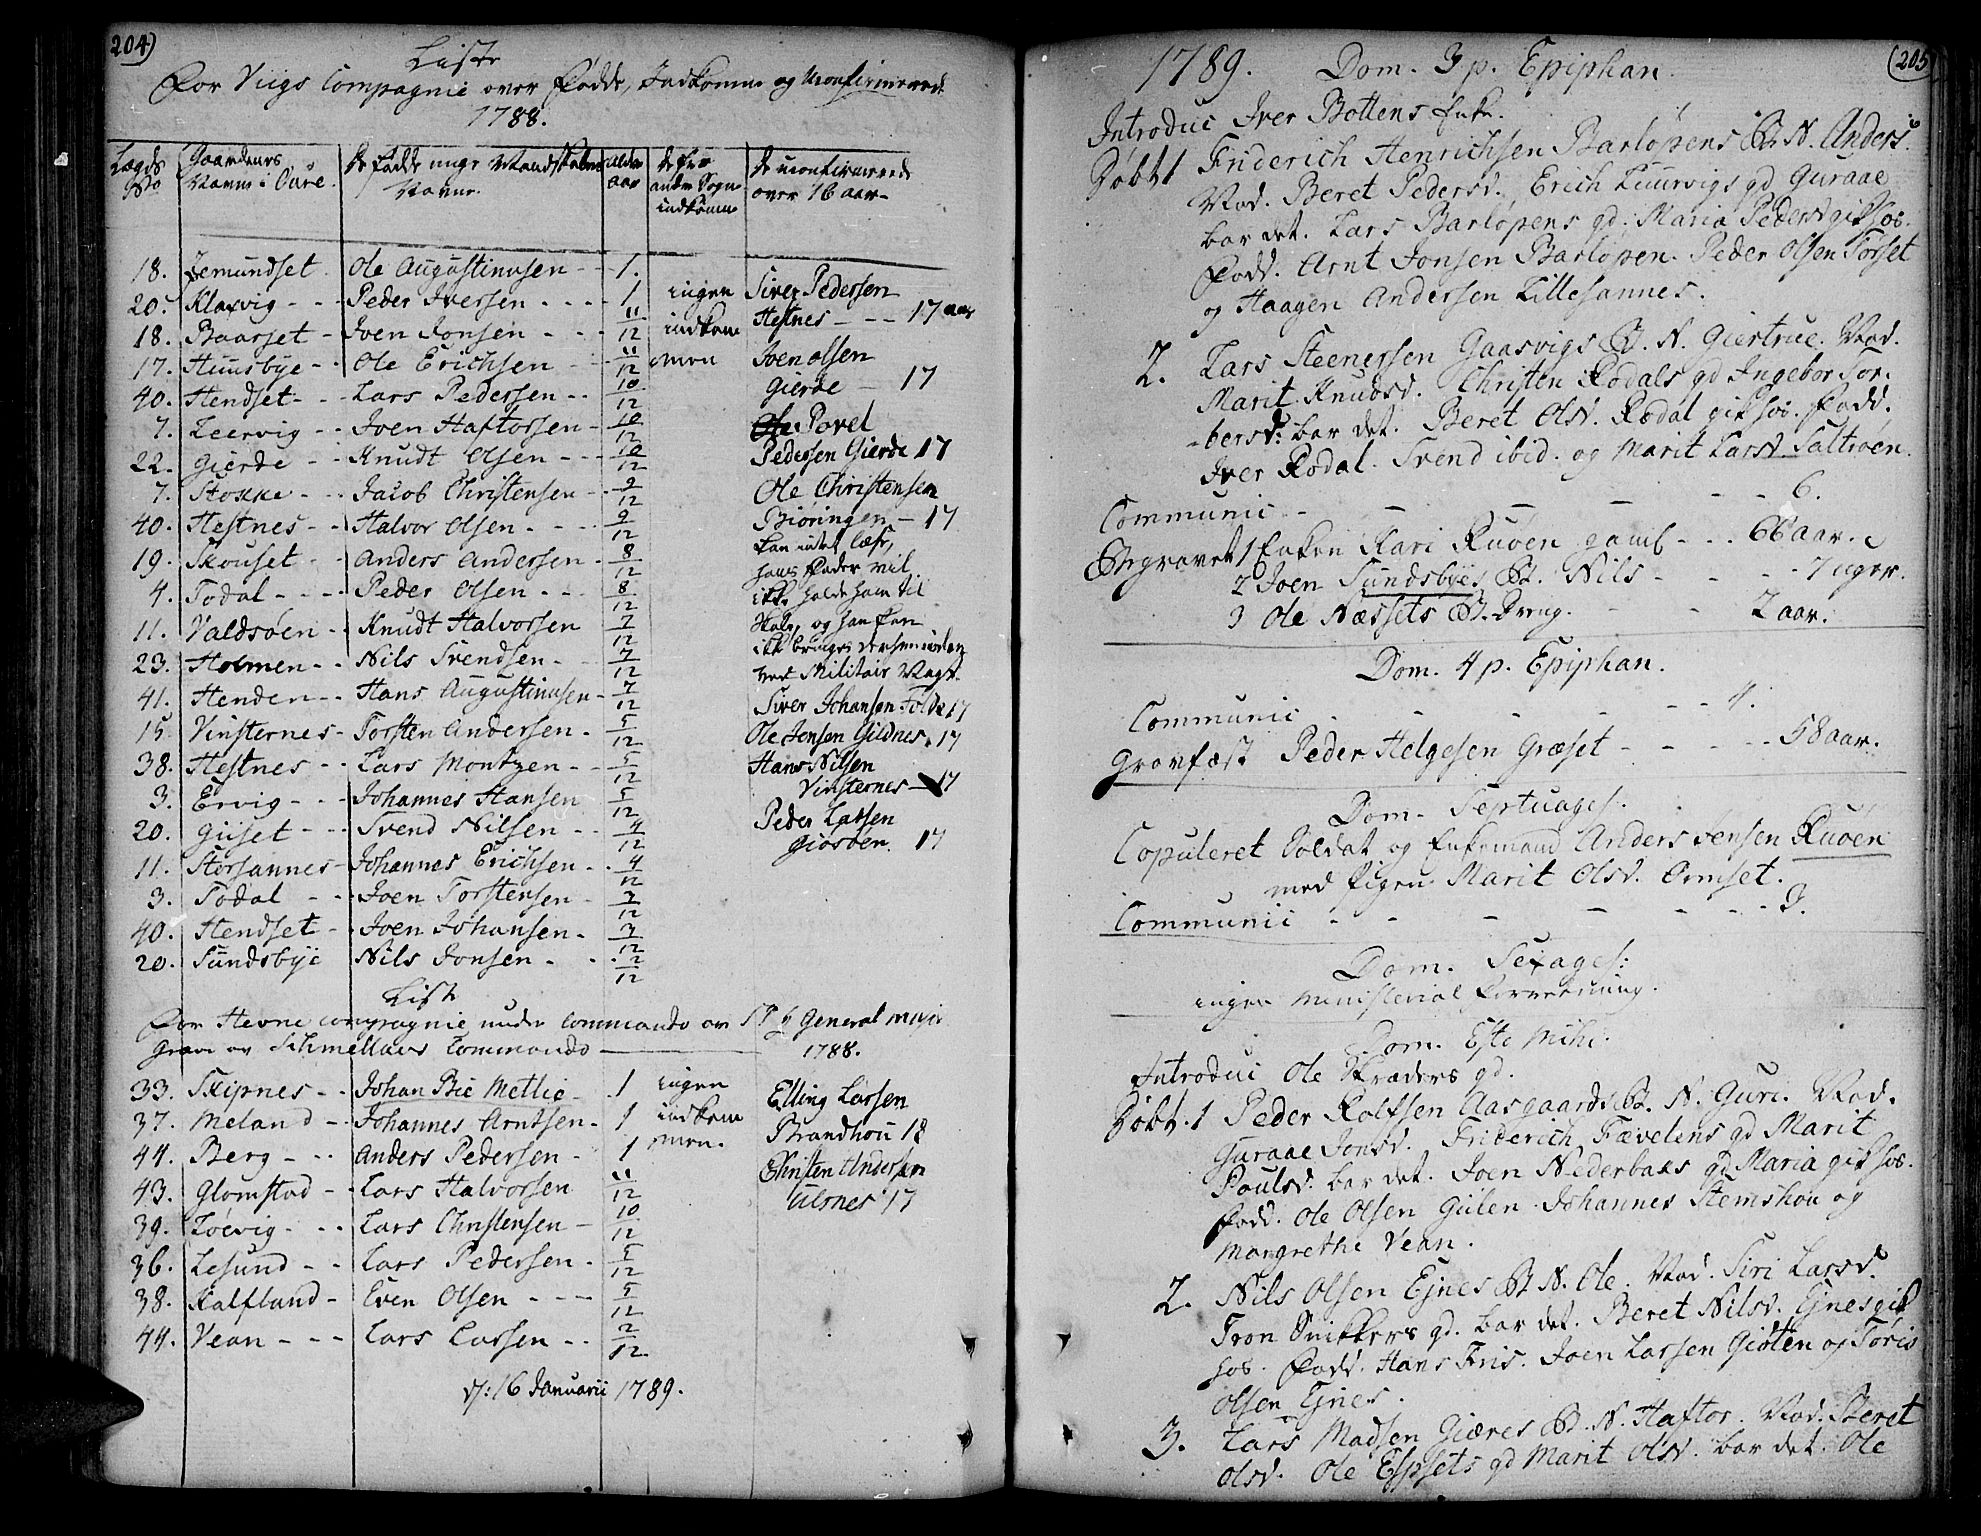 204)
Liste
For Viigs Compagnie over Fødde, Indkomne og Uconfirmerede
1788.
Lægds No | Gaardenes Navne i Oure. | De fødde unge Mandskabers Navne. | Alder aar | De fra andre Sogne indkomne | De uconfirmerede over 16 aar
18. Jemundset. Ole Augustinusen - - 1.
20. Klafvig - - Peder Iversen - - - - 1 ingen Siver Pedersen
18. Baarset - Joen Jonsen - - - 11/12 indkom Hestnes - - - 17 aar
17. Huusbye - - Ole Erichsen - - 11/12 men Joen Olsen
40. Hendset - - Lars Pedersen - - 10/12 Gierde - 17
7. Leervig - - Joen Haftorsen - 10/12 Ole Povel
22. Gierde - - Knudt Olsen - - - 10/12 Pedersen Gierde 17
7. Stokke - - Jacob Christensen - - 9/12 Ole Christensen
40. Hestnes - - Halvor Olsen - - - - 9/12 Biøringen - 17
19. Skouset - - Anders Andersen - 8/12 kan intet læse,
4. Todal - - - - Peder Olsen - - - 8/12 hans Fader vil
11. Valdsøen - - Knudt Halvorsen 7/12 ikke holde ham til
23. Holmen - - Nils Svendsen - 7/12 Skole, og han kan
41. Henden - - Hans Augustinusen - 7/12 ikke bringes dertil uden
15. Vinsternes - Torsten Andersen - 5/12 ved Militair Magt.
38. Hestnes - - Lars Montzen - - 5/12 Siver Johansen Folde 17
3. Ervig - - - Johannes Hansen 5/12 Ole Jensen Gildnes. 17
20. Giset - - - Svend Nilsen - - 4/12 Hans Nilsen
11. Storsannes - Johannes Erichsen - . 4/12 Vinsternes - 17
3. Todal - - - Joen Torstensen - 3/12 Peder Larsen
40. Hendset - - Joen Johansen - 3/12 Giøsøen. 17
20. Sundsbye Nils Jonsen - . . 2/12
Liste
For Hevne compagnie under Commando av General major
Greve av Schmettaus Commando 1788.
33. Skipnes - - Johan Brie Mettie - . 1 ingen Elling Larsen
37. Meland - - Johannes Arntsen - 1 indkom Brandhou 18
44. Berg - - - Anders Pedersen - 1 men. Christen Andersen
43. Glomstad - - Lars Halvorsen 11/12 Ulsnes 17
39. Løevig - - - Lars Christensen - 10/12
36. Lesund - - Lars Pedersen - 5/12
38. Kalfland - Even Olsen - - - 5/12
44. Vean - - - Lars Larsen - - 2/12
d: 16 Januarii 1789.
(205
1789. Dom. 3 p. Epiphan.
Introduc Iver Bottens Enke.
Døbt 1 Friderich Henrichsen Barløpens B. N. Anders.
Mod. Beret Pedersd. Erich Kuurvigs gd Guraae
bar det. Lars Barløpens gd. Maria Pedersd gik hos.
Fadd. Arnt Jonsen Barløpen. Peder Olsen Torset
og Haagen Andersen Lillesannes.
2. Lars Steenersen Gaasvigs B. N. Giertrue. Mod.
Marit Knudsd. Christen Rodals gd Ingebor Tor-
bersd: bar det. Beret Olsd. Rodal gik hos. Fadd.
Iver Rodal. Svend ibid. og Marit Larsd Saltrøen.
Communic - - - - - - - 6.
Begravet 1 Enken Kari Ruøen gaml - - - 66 aar.
2 Joen Sundsbyes B. Nils - - - - 7 uger.
3 Ole Næssets B. Dreng. - - 2 aar.
Dom. 4 p. Epiphan.
Communic - - - - - - 4.
Gravfæst Peder Helgesen Græset - - - - - 58 aar.
Dom. Septuages.
Copuleret Soldat og Enkemand Anders Jensen Ruøen
med Pigen Marit Olsd. Ormset.
Communic - - - - - - 3.
Dom. Sexages:
ingen Ministerial Forretning.
Dom. Esto Mihi.
Introduc Ole Skræders gd.
Døbt. 1 Peder Rolfsen Aasgaards B. N. Guri. Mod.
Guraae Jonsd. Friderich Fævelens gd Marit
Poulsd. bar det. Joen Nederbaks gd Maria gik hos.
Fadd. Ole Olsen Gulen Johannes Stemshou og
Margrethe Vean.
2. Nils Olsen Ejnes B. N. Ole. Mod. Siri Larsd.
Tron Snikkers gd. bar det. Beret Nilsd. Ejnes gik
hos. Fadd. Hans Fris. Joen Larsen Gisten og Tøris
Olsen Ejnes.
3. Lars Madsen Giæres B. N. Haftor. Mod. Beret
Olsd. Ole Espsets gd Marit Olsd. bar det. Ole